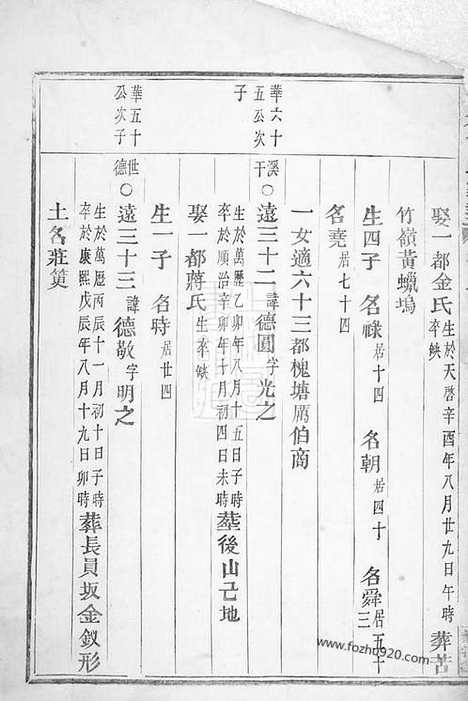 娶一都金氏生於天啓辛酉年八月廿九日午時卒缺葬苦
竹嶺黃蠟塢
生四子 名祿居十四 名朝居四十 名舜居五十三
名堯居七十四
一女適六十三都槐塘厲伯商
華六十五公次子 溪干〇遠三十二諱德圓字光之
生於萬歷乙卯年八月十五日子時卒於順治辛卯年十月初四日未時塟後山己地
娶一都蔣氏生卒缺
生一子 名時居廿四
華五十公次子 世德〇遠三十三諱德敬字明之
生於萬歷丙辰十一月初十日子時卒於康熙戊辰年八月十九日卯時葬長員坂金釵形
土名莊箕
www.fozhu920.com